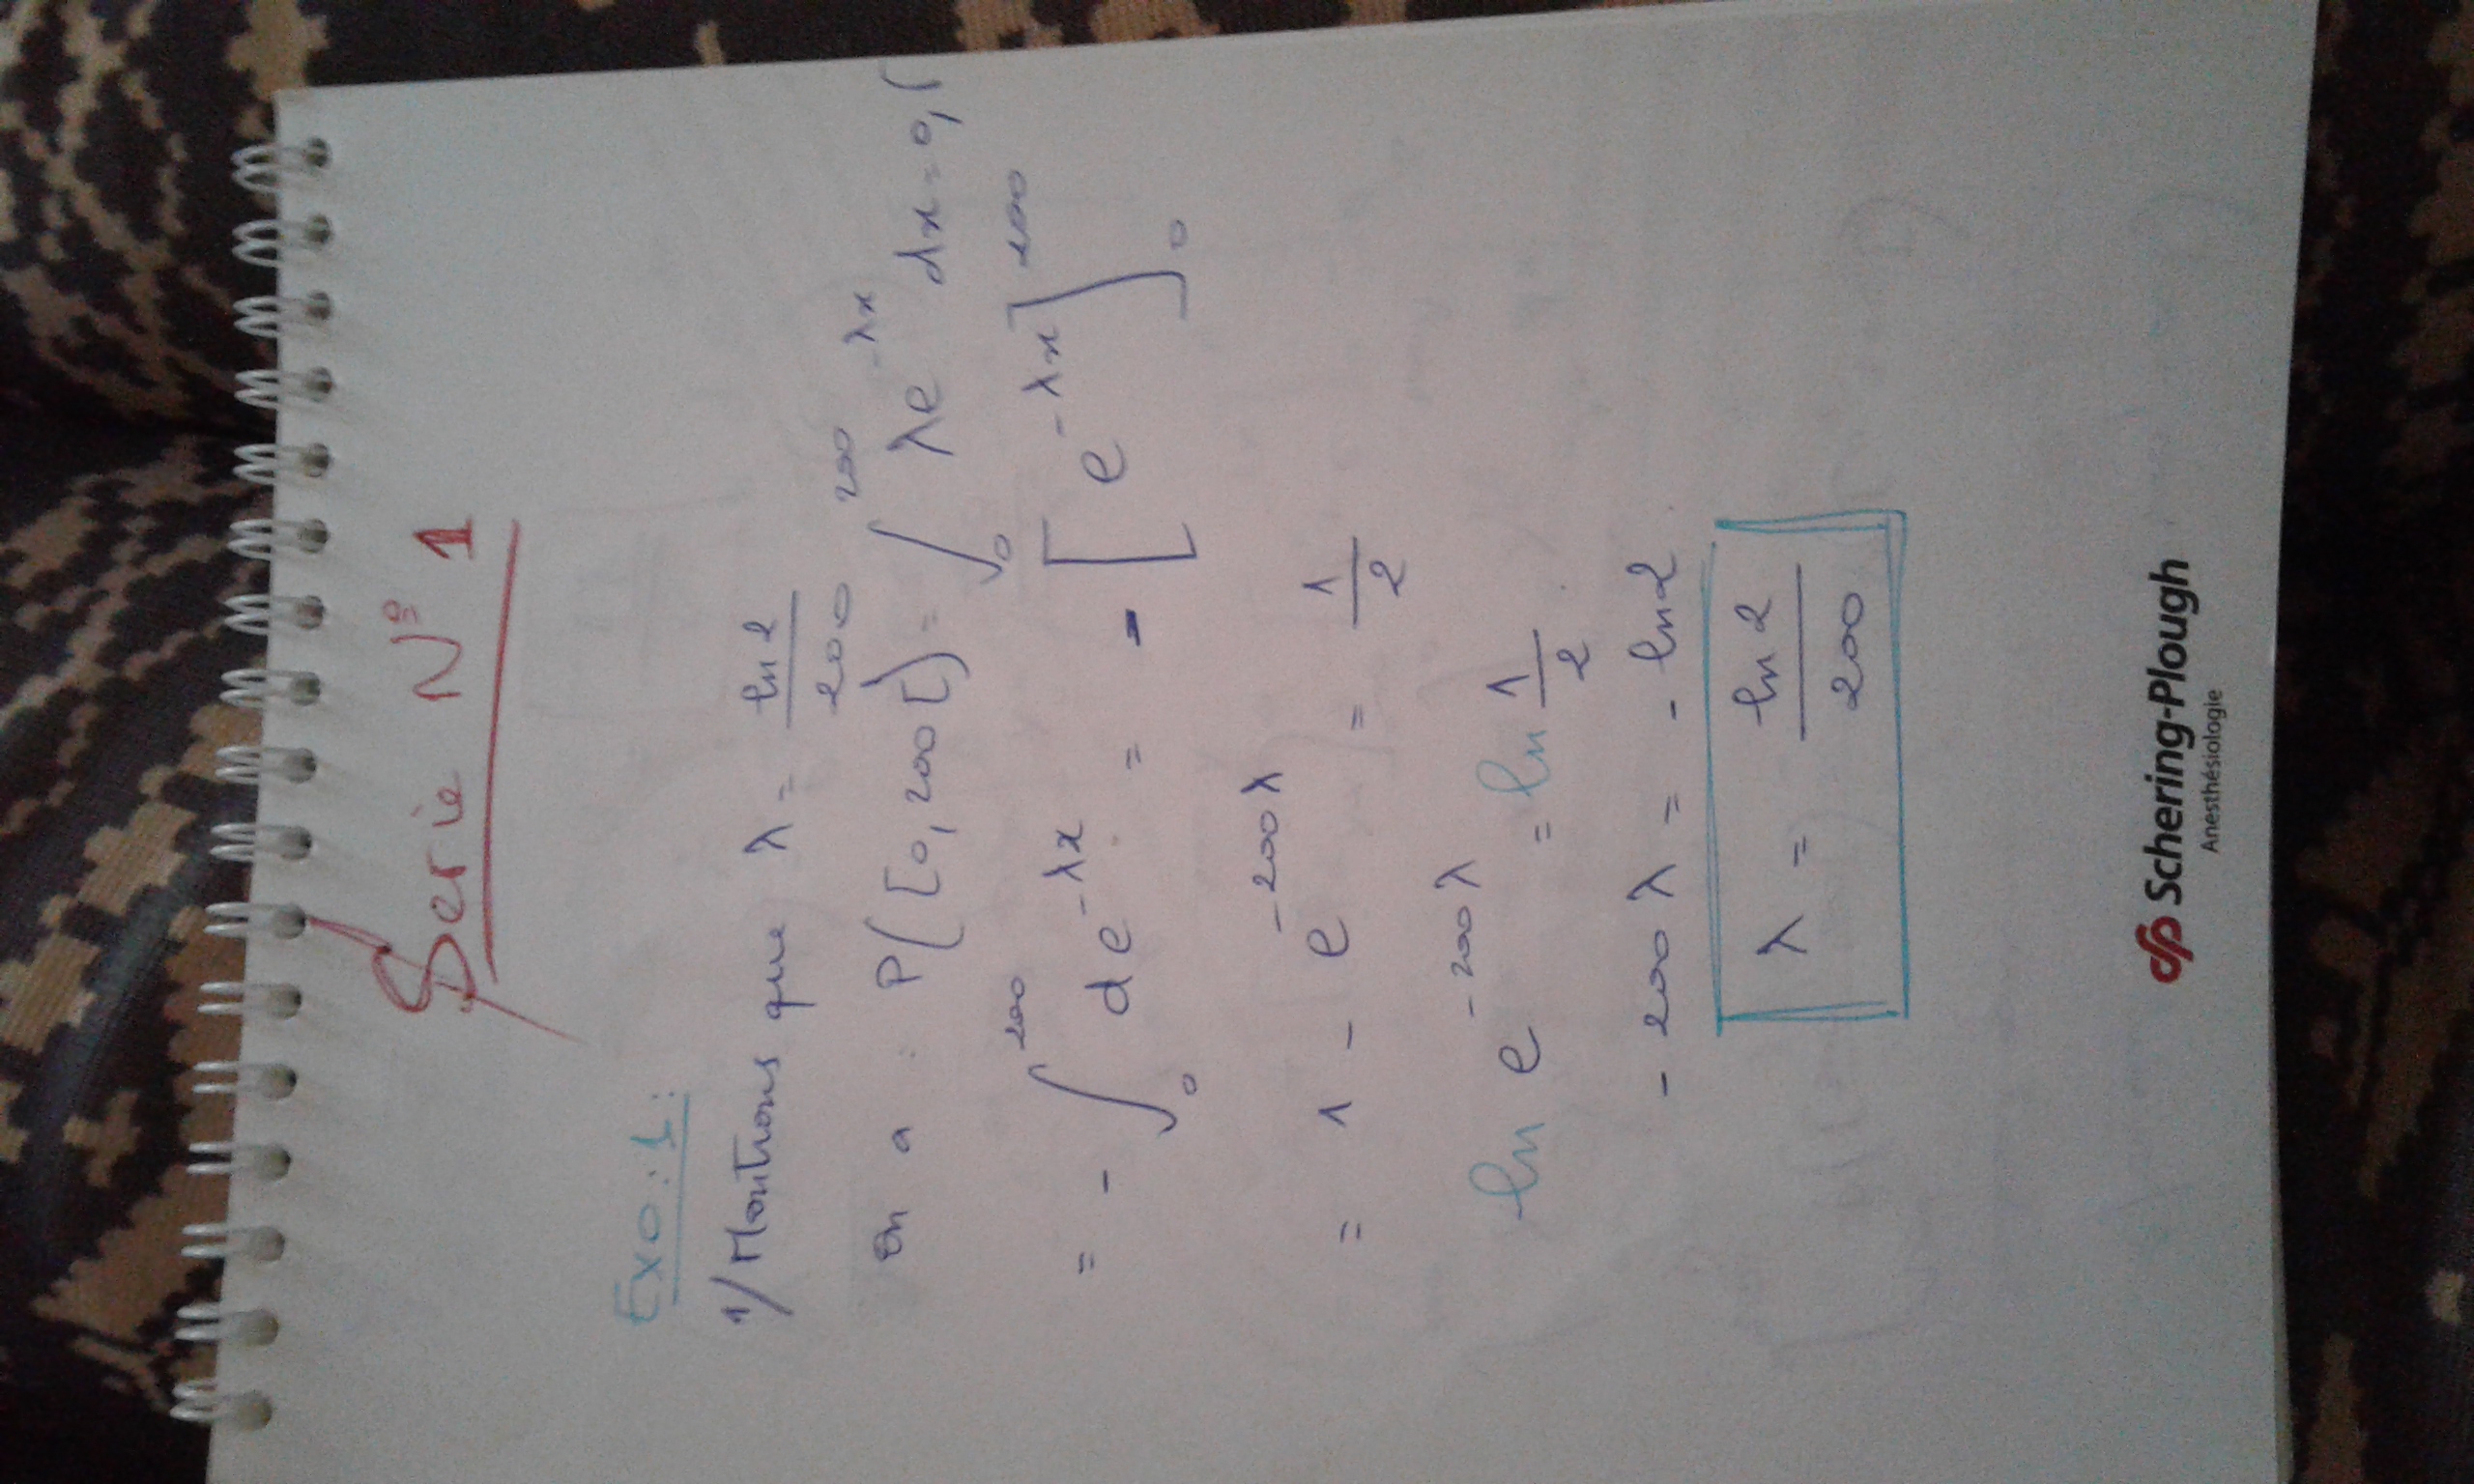 Serie N° 1
Exo:1:
1/ Montrons que λ = ln 2 / 200
on a : P([0,200[) = ∫₀²⁰⁰ λe^{-λx} dx = 0,5
= - ∫₀²⁰⁰ de^{-λx} = - [e^{-λx}]₀²⁰⁰
= 1 - e^{-200λ} = 1/2
ln e^{-200λ} = ln 1/2
- 200 λ = - ln 2
λ = ln 2 / 200
Schering-Plough
Anesthésiologie